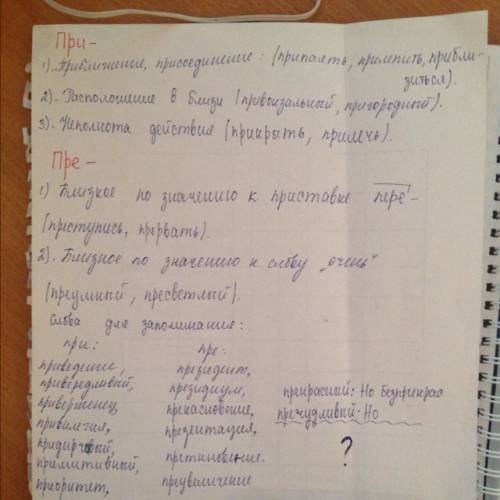 При-
1). Приближение, присоединение: (припаять, прилепить, прибли-
зиться).
2). Расположение в близи (привокзальный, пригородный).
3). Неполнота действия (прикрыть, прилечь).
Пре-
1) Близкое по значению к приставке пере-
(преступись, прервать).
2). Близкое по значению к слову "очень"
(преумный, пресветлый).
Слова для запоминания:
при: пре:
приведение, президент,
привередливый, президиум, прекрасный: Но безприкрас
приверженец, прекасновение, пречудливый: Но
привилегия, презентация, ?
придирчивый, преткновение.
примитивный, преувеличение
приоритет,